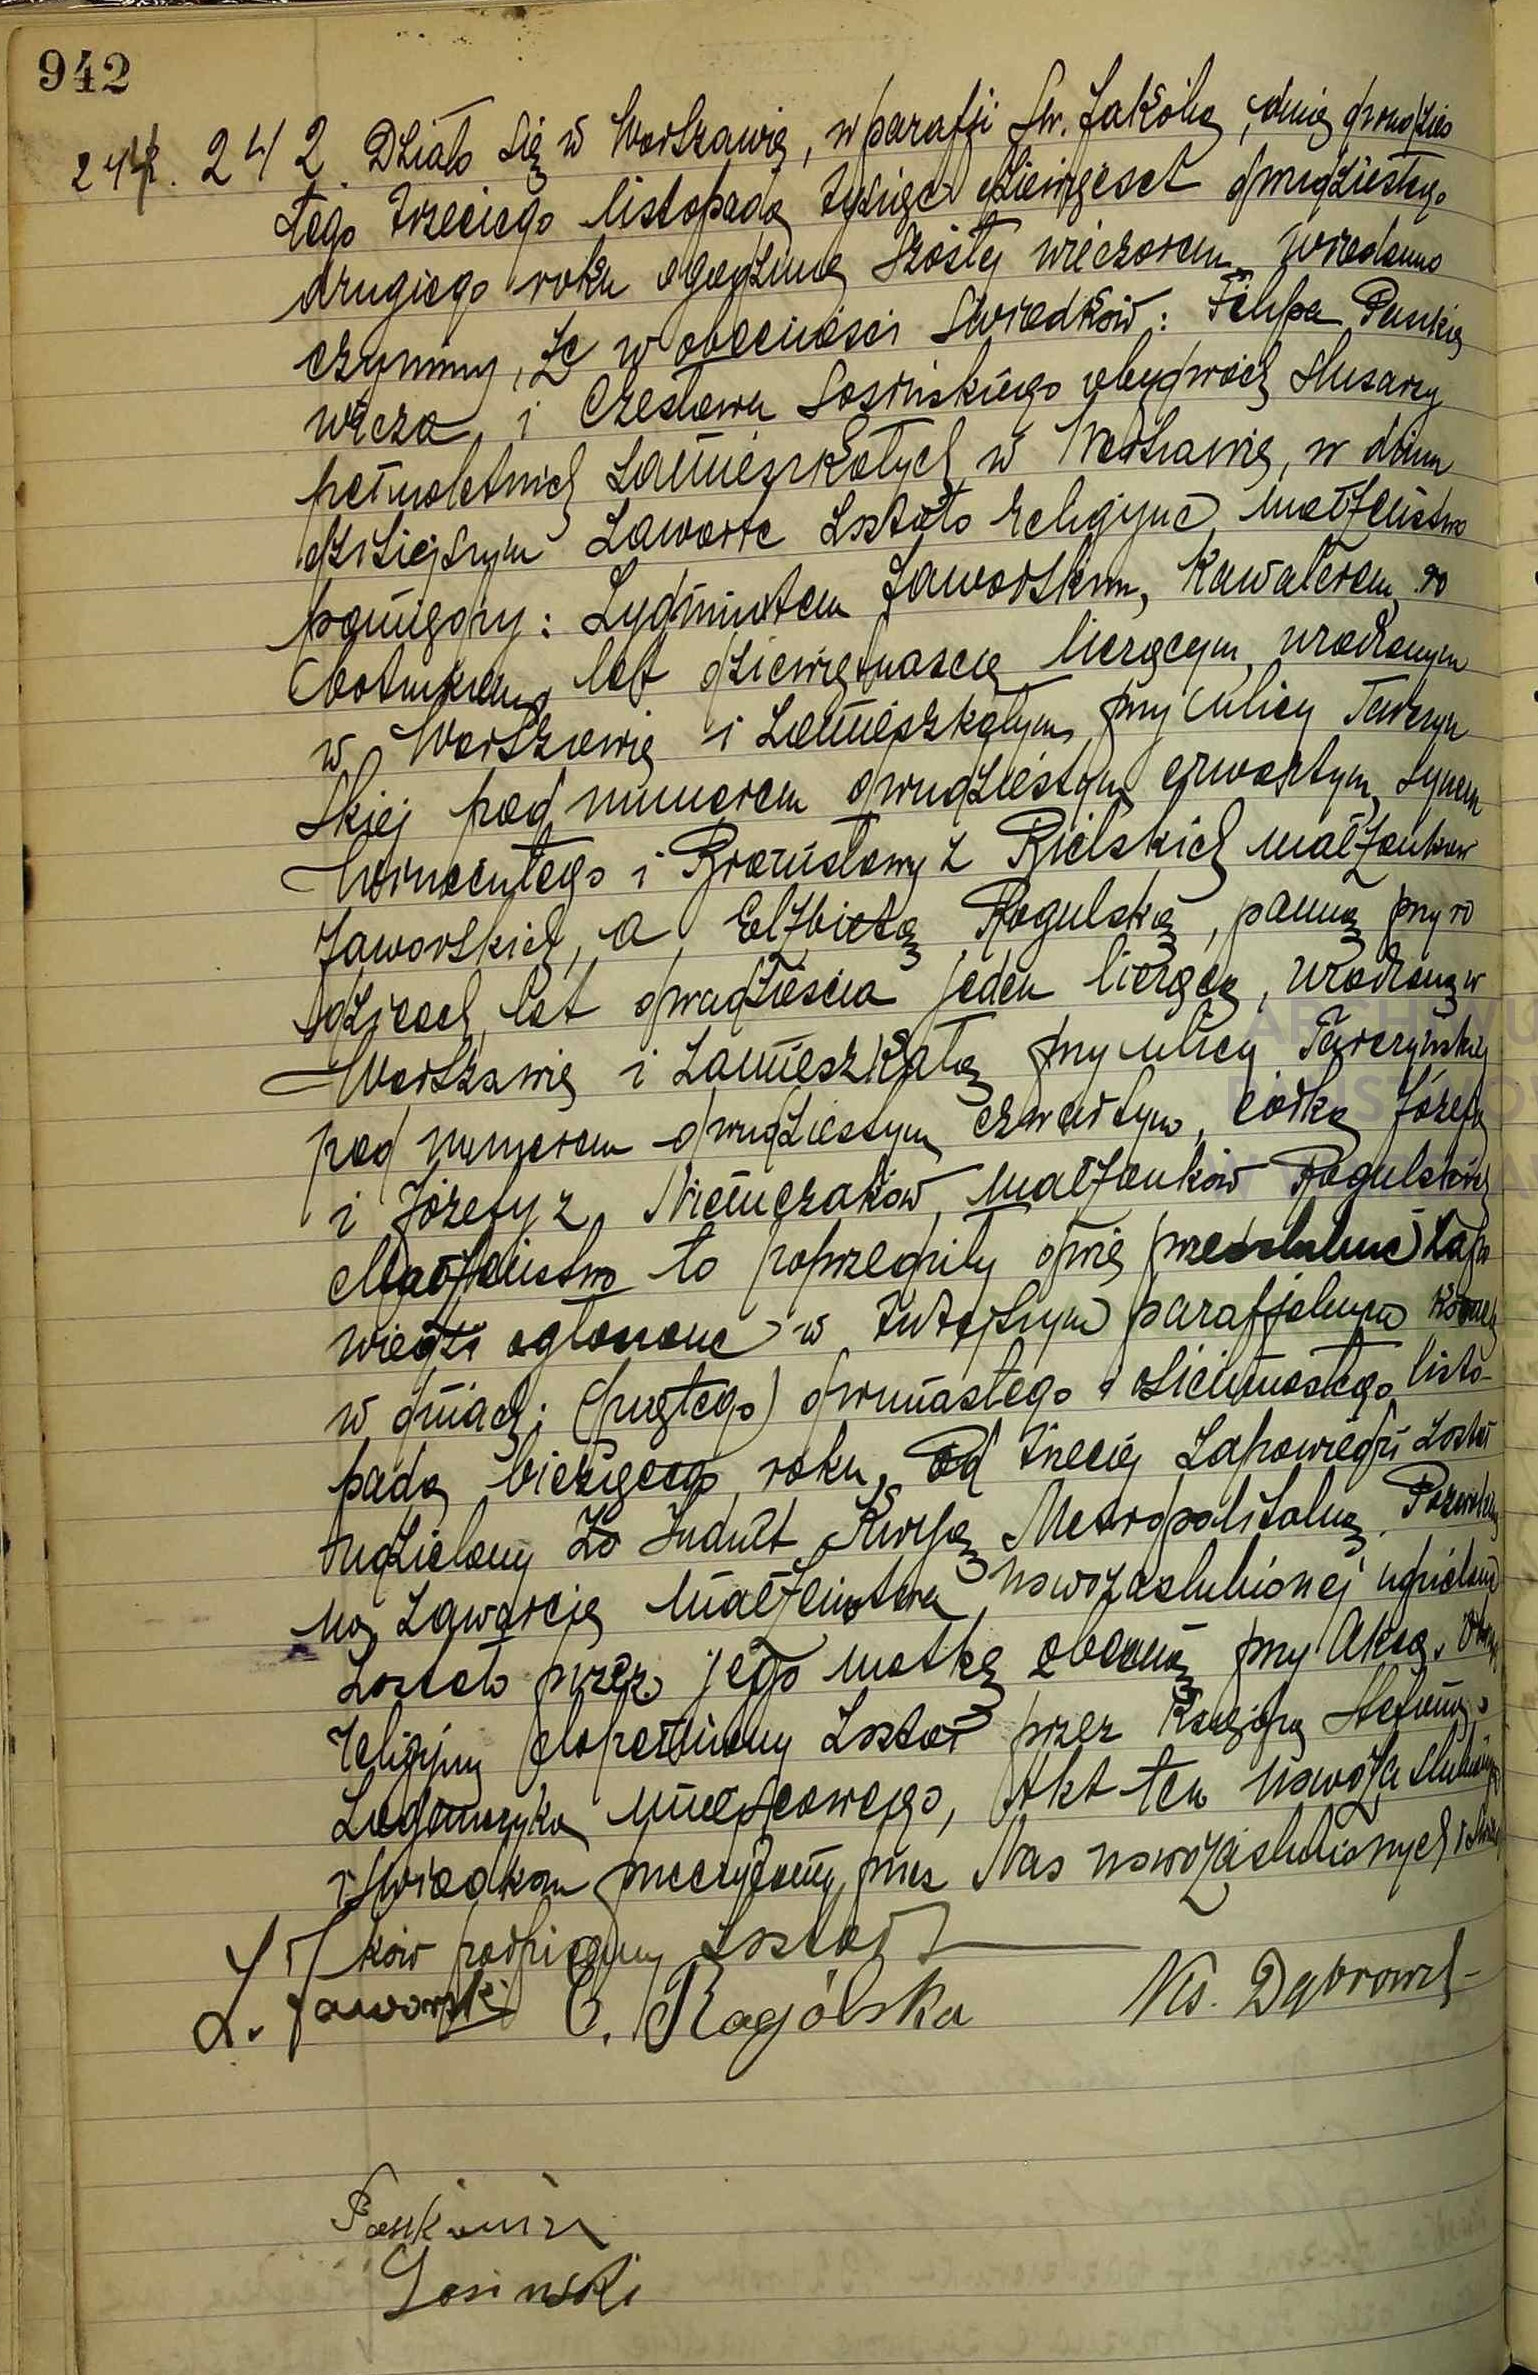 942
242. 242. Działo się w Warszawie, w parafji Św. Jakóba, dnia dwudzies
tego trzeciego listopada tysiąc dziewięćset dwudziestego
drugiego roku o godzinie szóstej wieczorem. Wiadomo
czynimy, że w obecności świadków: Filipa Paukie
wicza i Czesława Sosińskiego obydwóch ślusarzy
pełnoletnich zamieszkałych w Warszawie, w dniu
dzisiejszym zawarte zostało religijne małżeństwo
pomiędzy: Zygmuntem Jaworskim, kawalerem, ro
botnikiem, lat dziewiętnaście liczącym, urodzonym
w Warszawie i zamieszkałym przy ulicy Tarczyń
skiej pod numerem dwudziestym czwartym, synem
Wincentego i Bronisławy z Bielskich małżonków
Jaworskich, a Elżbietą Rogulską, panną przy ro
dzicach, lat dwadzieścia jeden liczącą, urodzoną w
Warszawie i zamieszkałą przy ulicy Tarczyńskiej
pod numerem dwudziestym czwartym, córką Józefa
i Józefy z Niemczaków, małżonków Rogulskich
Małżeństwo to poprzedziły dwie przedślubne zapo
wiedzi ogłoszone w tutejszym parafjalnym
w dniach: (piątego) dwunastego i dziewiętnastego listo-
pada bieżącego roku, od trzeciej zapowiedzi został
udzielony Indult Kurją Metropolitalną. Pozwolenie
na zawarcie małżeństwa nowozaślubionej udzielone
zostało przez jego matkę obecną przy akcie.
religijny dopełniony został przez Księdza Stefana
miejscowego, Akt ten nowozaślubionym
i świadkom przeczytany, przez Nas nowozaślubionych i świad
ków podpisany został
Z. Jaworski E. Rogólska Ks. Dąbrowsk
Paukiewicz
Sosinski